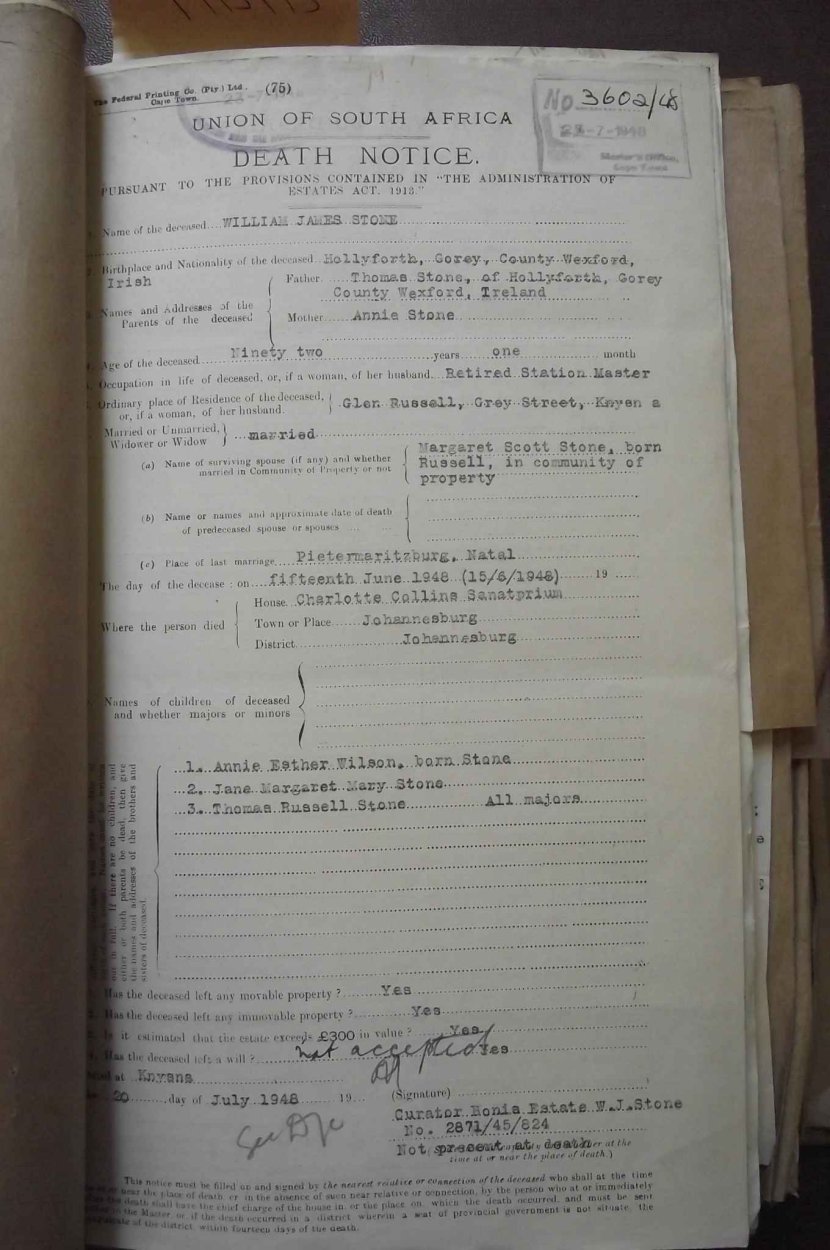 The Federal Printing Co. (Pty.) Ltd. (75)
Cape Town.
No 3602/48
23-7-1948
Master's Office,
Cape Town
UNION OF SOUTH AFRICA
DEATH NOTICE.
PURSUANT TO THE PROVISIONS CONTAINED IN "THE ADMINISTRATION OF
ESTATES ACT. 1913."
Name of the deceased WILLIAM JAMES STONE
Birthplace and Nationality of the deceased Hollyforth, Gorey, County Wexford,
Irish
Father Thomas Stone, of Hollyforth, Gorey
County Wexford, Ireland
Names and Addresses of the
Parents of the deceased
Mother Annie Stone
Age of the deceased Ninety two years one month
Occupation in life of deceased, or, if a woman, of her husband. Retired Station Master
Ordinary place of Residence of the deceased,
or, if a woman, of her husband. Glen Russell, Grey Street, Knysn a
Married or Unmarried,
Widower or Widow married
(a) Name of surviving spouse (if any) and whether
married in Community of Property or not
Margaret Scott Stone, born
Russell, in community of
property
(b) Name or names and approximate date of death
of predeceased spouse or spouses
(c) Place of last marriage Pietermaritzburg, Natal
The day of the decease : on fifteenth June 1948 (15/6/1948) 19
Where the person died
House Charlotte Collins Sanatprium
Town or Place Johannesburg
District Johannesburg
Names of children of deceased
and whether majors or minors
1. Annie Esther Wilson, born Stone
2. Jane Margaret Mary Stone
3. Thomas Russell Stone All majors
our in full. If there are no children, and
either or both parents be dead, then give
the names and addresses of the brothers and
sisters of deceased.
Has the deceased left any movable property ? Yes
Has the deceased left any immovable property ? Yes
Is it estimated that the estate exceeds £300 in value ? Yes
Has the deceased left a will ? Yes
not accepted
at Knysna
20 day of July 1948 19
(Signature)
Curator Bonis Estate W.J.Stone
No. 2871/45/824
Not present at death
time at or near the place of death.)
This notice must be filled up and signed by the nearest relative or connection of the deceased who shall at the time
or near the place of death, or in the absence of such near relative or connection, by the person who at or immediately
death shall have the chief charge of the house in, or the place on, which the death occurred, and must be sent
to the Master, or, if the death occurred in a district wherein a seat of provincial government is not situate, the
of the district within fourteen days of the death.